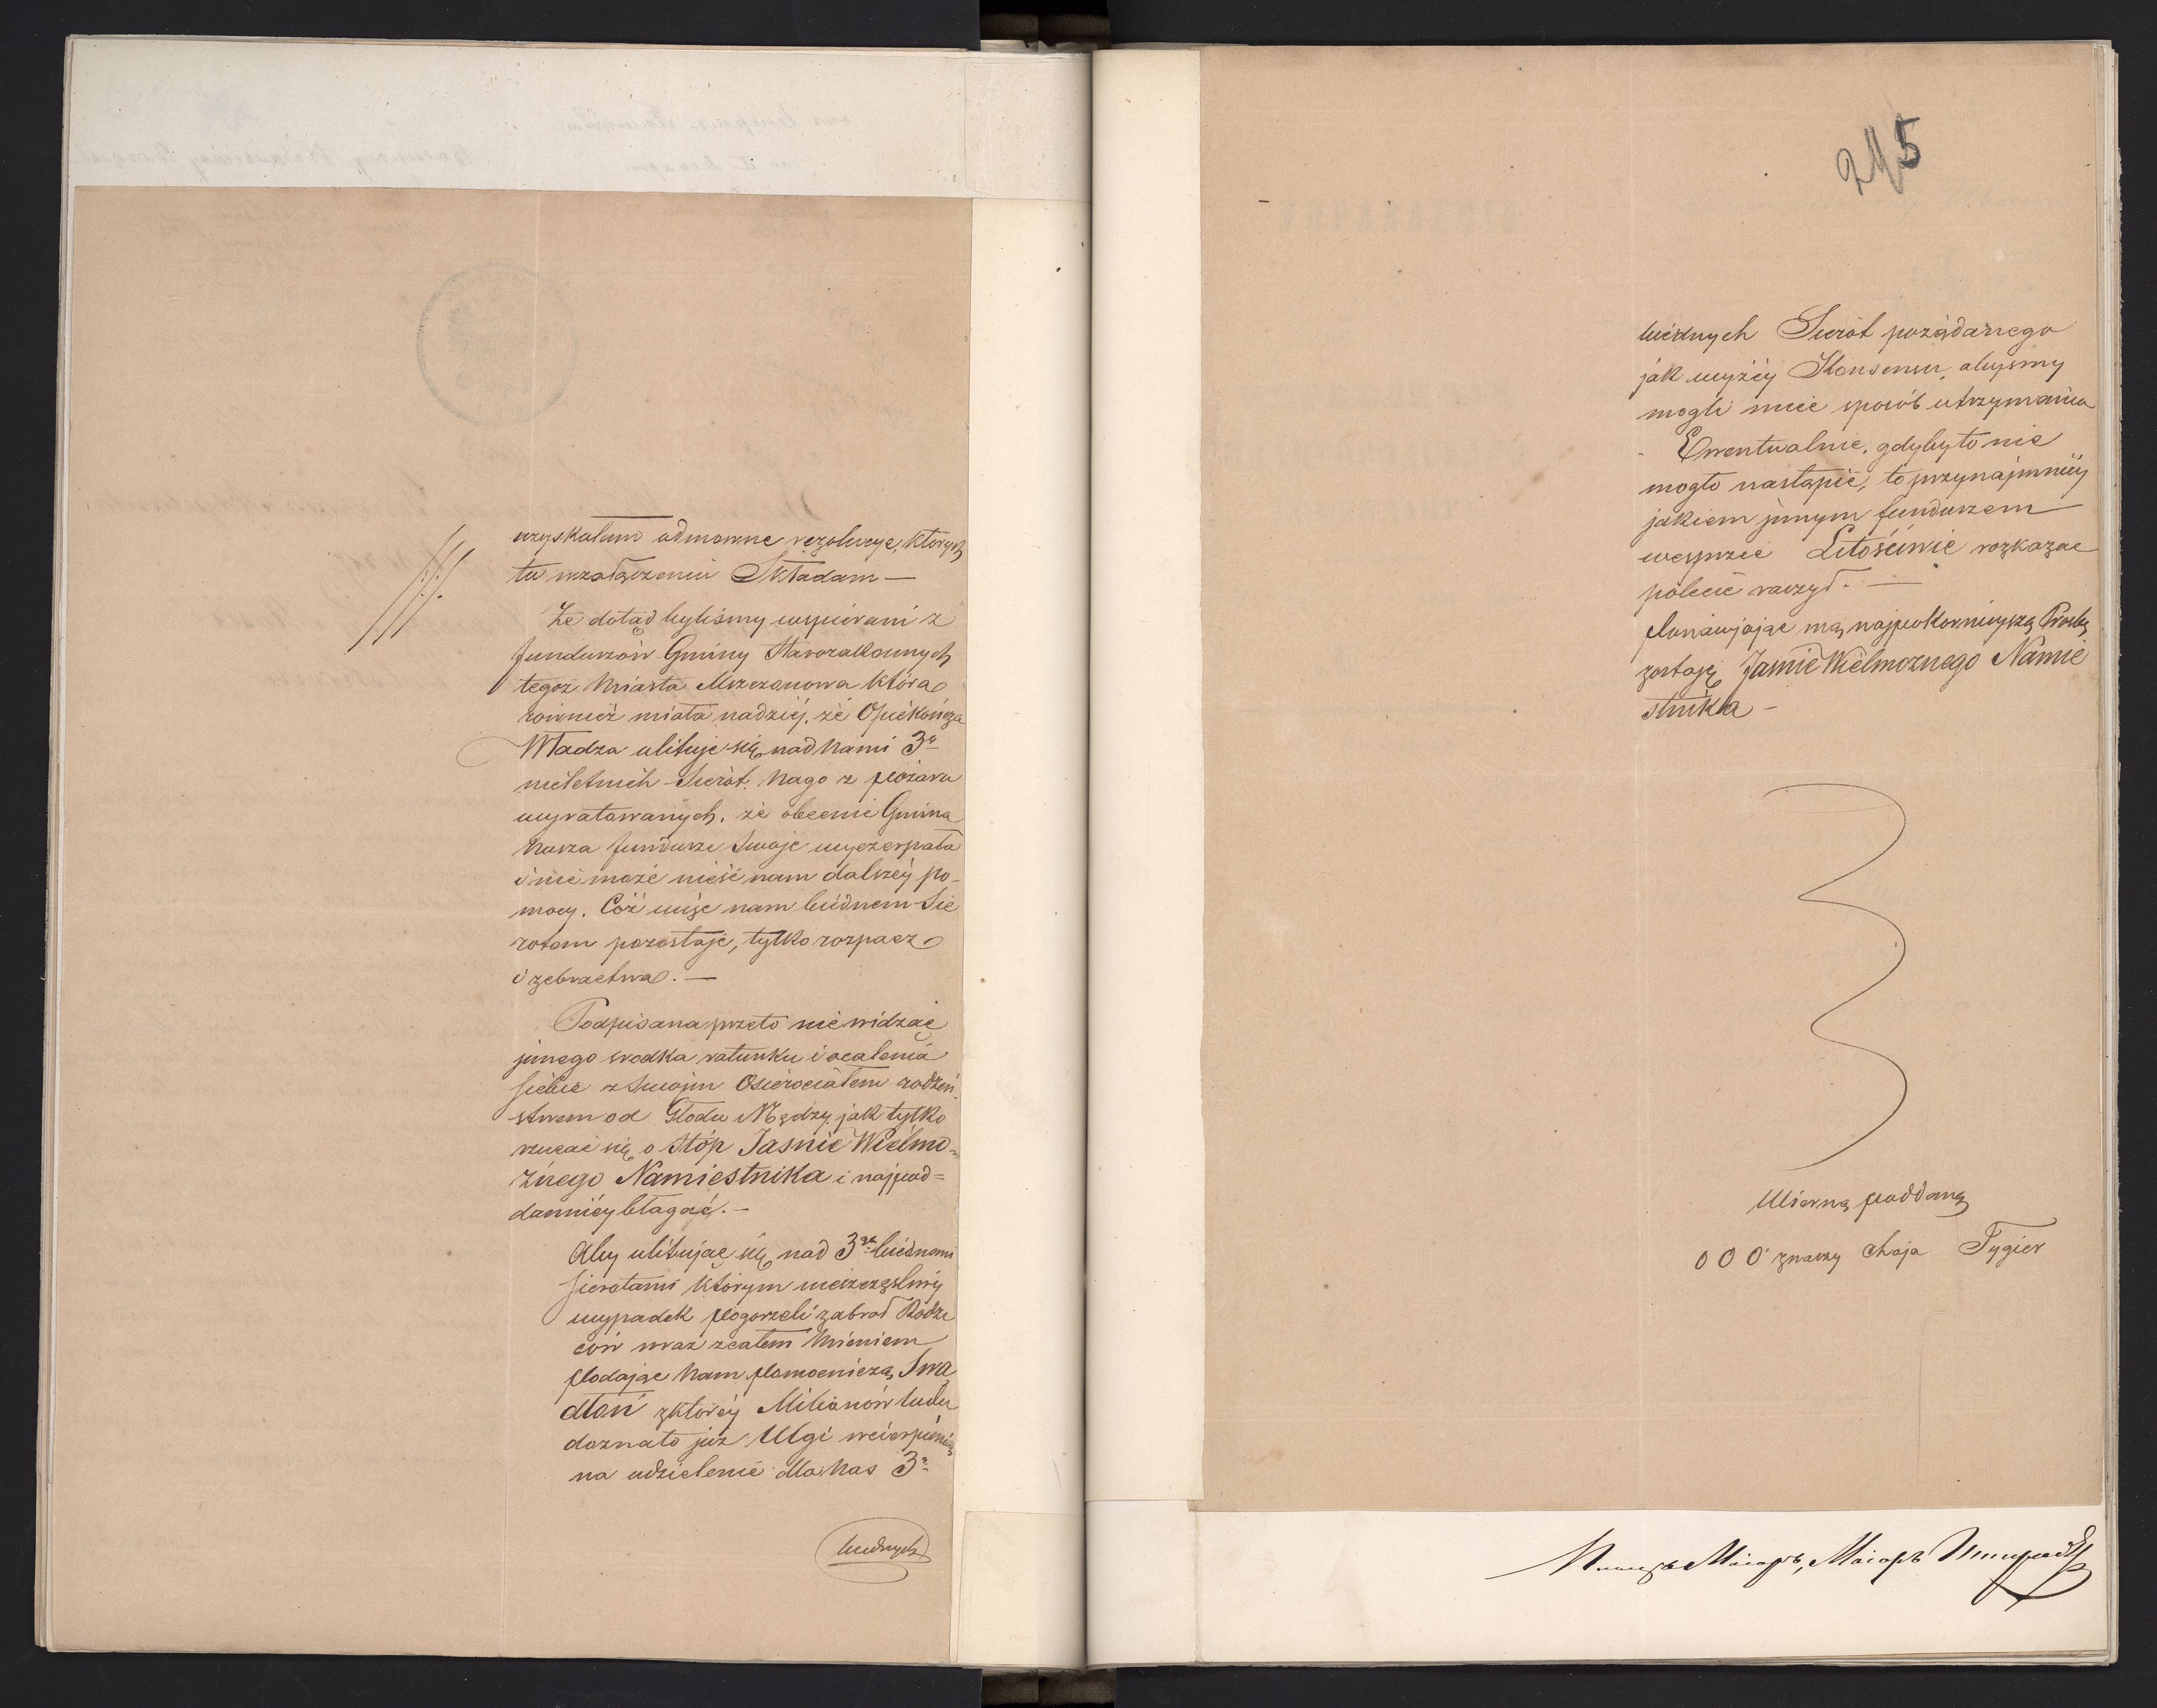 uzyskałam odmowne rezolucye, których
tu wzałączeniu Składam —
Że dotąd byliśmy wspierani z
funduszów Gminy Starozakonnych
tegoż Miasta Mszczonowa która
rownież miała nadzięj, że Opiekończa
Władza ulituje się nad Nami 3a
nieletnich Sierót, Nago z pożaru
wyratowanych, że obecnie Gmina
Nasza fundusze Swoje wyczerpała
i nie może nieść nam dalszéj po-
mocy. Cóż więc nam biédnem Sie
rotom pozostaje, tylko rozpacz
i żebractwo. —
Podpisana przeto nie widząc
jinego srodka ratunku i ocalenia
siebie z Swojim Osierociałem rodzeń
stwem od Głodu i Nędzy, jak tylko
rzucać się o Stóp Jasnie Wielmo-
żnego Namiestnika i najpod=
danniéy błagać. —
Aby ulitując się nad 3ma biédnami
sierotami którym nieszczęsliwy
wypadek Pogorzeli zabrał Rodzi
ców wraz z całem Mieniem
Podając Nam Pomocniczą Swą
dłoń z któréy Milionów ludu
doznało już Ulgi w cierpieniu
na udzielenie dla Nas 3a
biednych
245
biédnych Sierót pożądanego
jak wyżéy Konsensu, abysmy
mogli mieć sposób utrzymania
Ewentualnie, gdyby to nie
mogło nastąpić, to przynajmniéj
jakiem jinnym funduszem
wesprzeć Litościwie rozkazac
polecić raczył. —
Ponawjając mą najpokornieyszą Prosbę
zostaję Jasnie Wielmoznego Namie
stnika —
Wierną poddaną
O O O znaczy Chaja Tygier